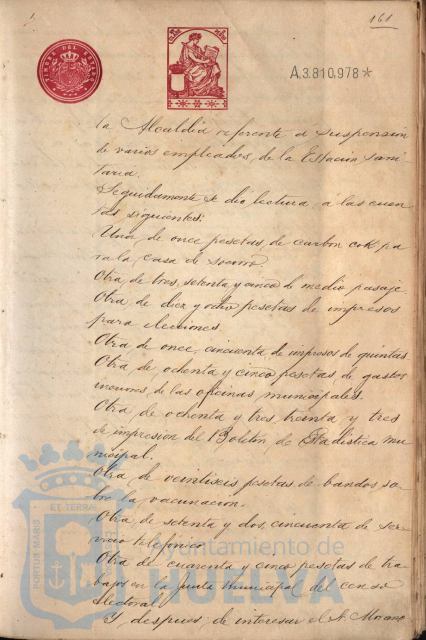 161
TIMBRE DEL ESTADO
A.3.810.978*
la Alcaldia referente a suspension
de varios empleados, de la Estación Sani-
taria.
Seguidamente se dio lectura, a las cuen-
tas siguientes:
Una, de once pesetas, de carbon cok pa
ra la casa de socorro.
Otra, de tres, setenta y cinco de medio pasaje
Otra de diez y ocho pesetas de impresos
para elecciones.
Otra de once, cincuenta de impresos de quintas.
Otra, de ochenta y cinco pesetas de gastos
menores, de las oficinas municipales.
Otra de ochenta y tres, treinta y tres
de impresion del Boletin de Estadistica mu-
nicipal.
Otra de veintiseis pesetas de bandos so-
bre la vacunacion.
Otra, de setenta y dos, cincuenta de ser-
vicio telefónico.
Otra de cuarenta y cinco pesetas de tra-
bajos en la Junta municipal del censo
electoral.
Y despues, de interesar el Sr. Morano
PORTUS MARIS ET TERRAE
Ayuntamiento de
HUELVA